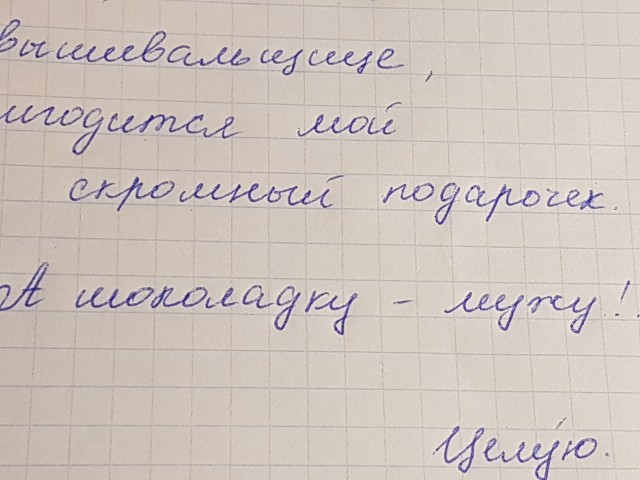 вышивальщице,
игодится мой
скромный подарочек.
А шоколадку - мужу!
Целую.